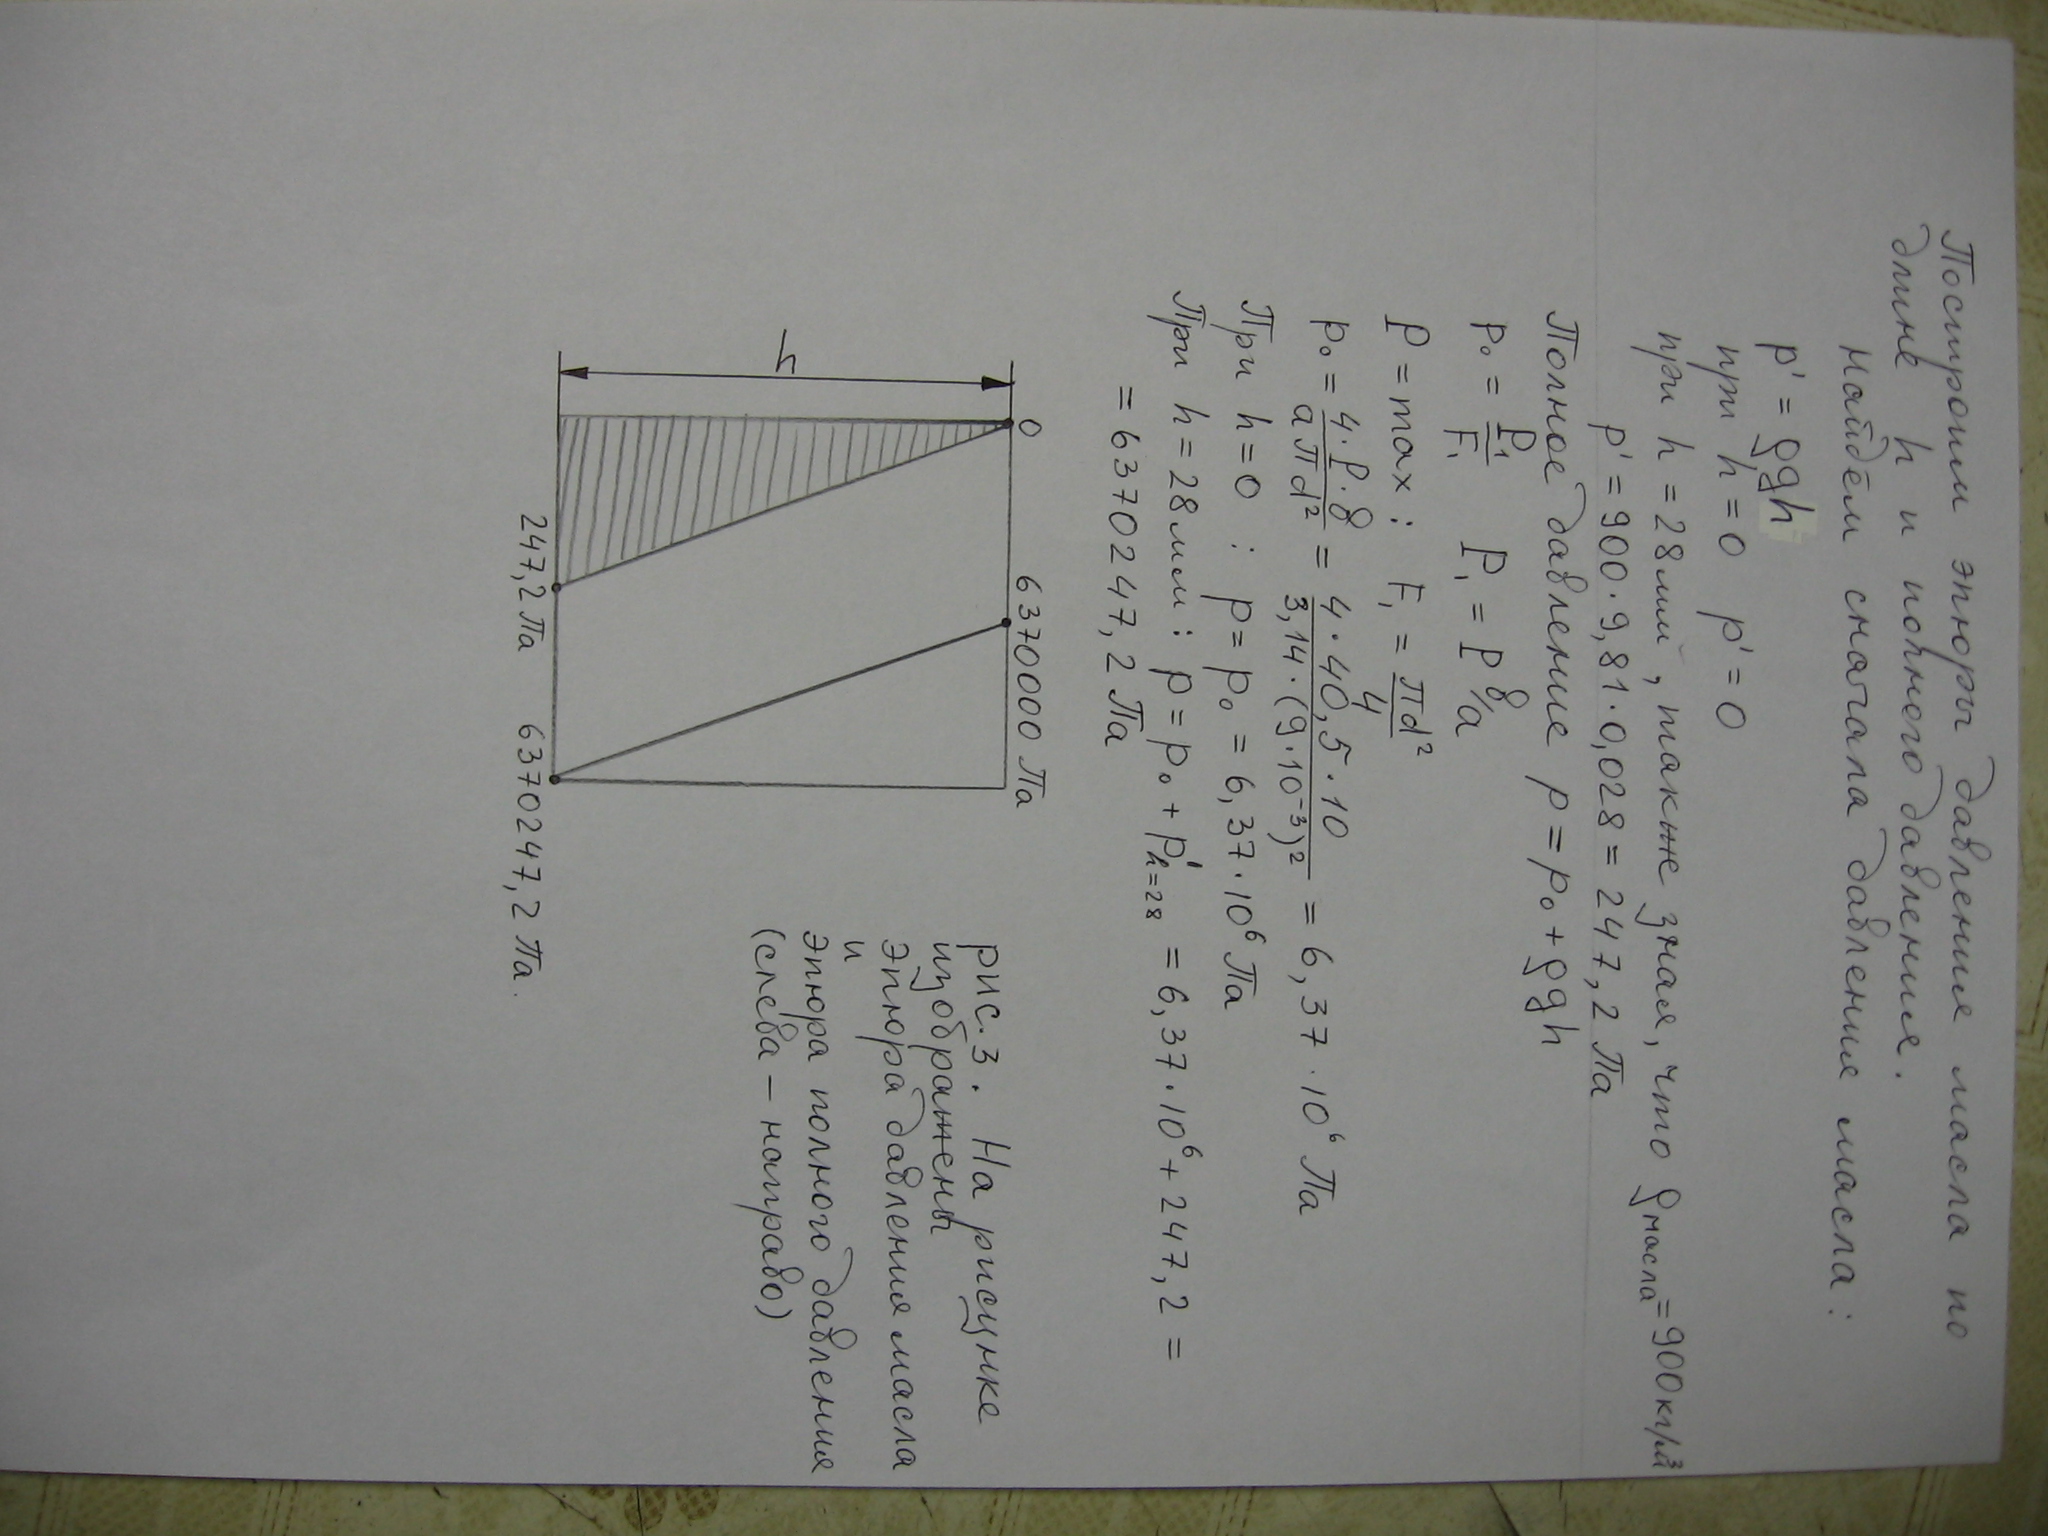 Построим эпюры давления масла по
длине h и полного давления.
найдём сначала давления масла:
p' = ρgh
при h = 0 p' = 0
при h = 28мм, также зная, что ρмасла = 900кг/м³
p' = 900 · 9,81 · 0,028 = 247,2 Па
Полное давление p = p₀ + ρgh
p₀ = P₁/F₁ P₁ = P в/а
P = max : F₁ = πd²/4
p₀ = 4·P·в/aπd² = 4·40,5·10/3,14·(9·10⁻³)² = 6,37 · 10⁶ Па
При h = 0 : p = p₀ = 6,37 · 10⁶ Па
При h = 28мм : p = p₀ + p'h=28 = 6,37 · 10⁶ + 247,2 =
= 6370247,2 Па
0 6370000 Па
h
247,2 Па 6370247,2 Па.
рис.3. На рисунке
изображены
эпюра давления масла
и
эпюра полного давления
(слева – направо)